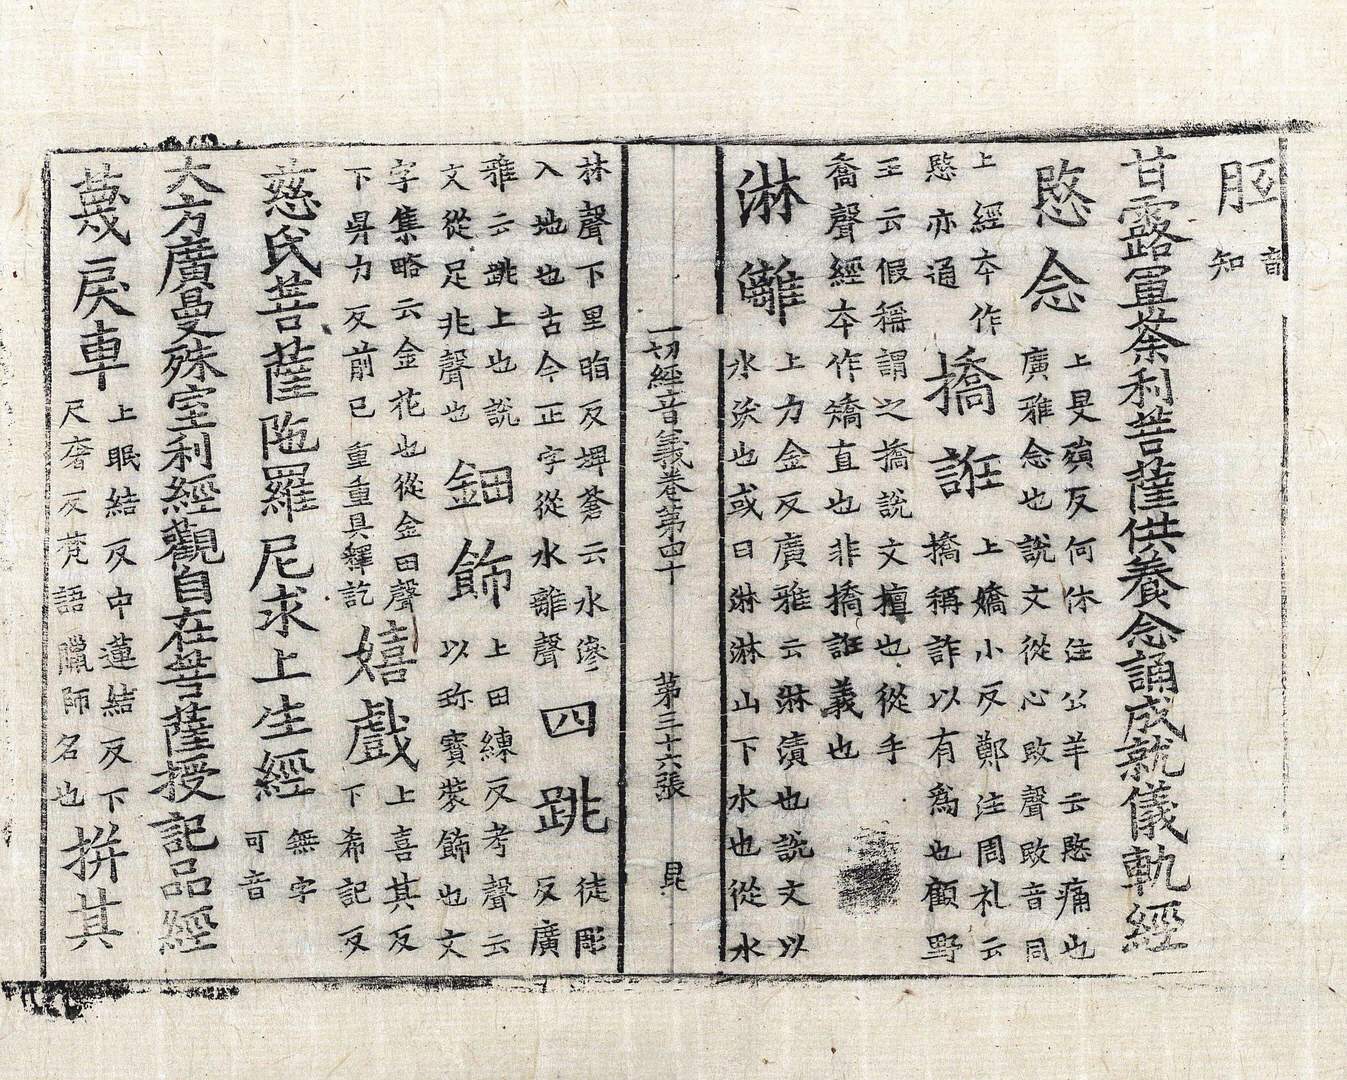 胵音知
甘露軍荼利菩薩供養念誦成就儀軌經
愍念上旻殞反何休注公羊云愍痛也廣雅念也說文從心敃聲敃音同
上經夲作愍亦通撟誑上嬌小反鄭注周礼云撟稱詐以有爲也顧野
王云假稱謂之撟說文擅也從手喬聲經夲作矯直也非撟誑義也
淋灕上力金反廣雅云淋漬也說文以水沃也或曰淋淋山下水也從水
一切經音義卷第四十 第三十六張 昆
林聲下里㫤反埤蒼云水滲入地也古今正字從水離聲四跳徒彫反廣
雅云跳上也說文從足兆聲也鈿飾上田練反考聲云以珎寶裝飾也文
字集略云金花也從金田聲下昇力反前已重重具釋訖嬉戲上喜其反下希記反
慈氏菩薩陁羅尼求上生經無字可音
大方廣曼殊室利經觀自在菩薩授記品經
蔑戾車上眠結反中蓮結反下尺奢反梵語臘師名也拼其